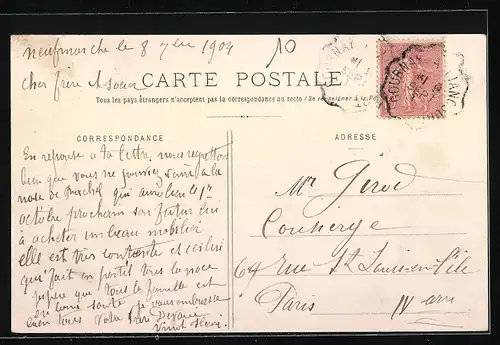 Neufmarché le 8 7bre 1904
10
Cher frère et Sœur
CARTE POSTALE
Tous les pays étrangers n'acceptent pas la correspondance au recto (Se renseigner à la Po
CORRESPONDANCE
ADRESSE
En reponse a ta lettre, nous regrettons
bien que vous ne pourriez venir a la
noce de qui aura lieu le 1er
octobre prochain son futur lui
à acheter un beau mobilier
elle est très contente et
que fait en petit tous la noce
J'espère que tous la famille est
en bonne santé je vous embrasse
bien tous Votre frère
Henri.
Mr Girod
Concierge
64 Rue St Louis en l'Ile
Paris IV arr
GOURNAY